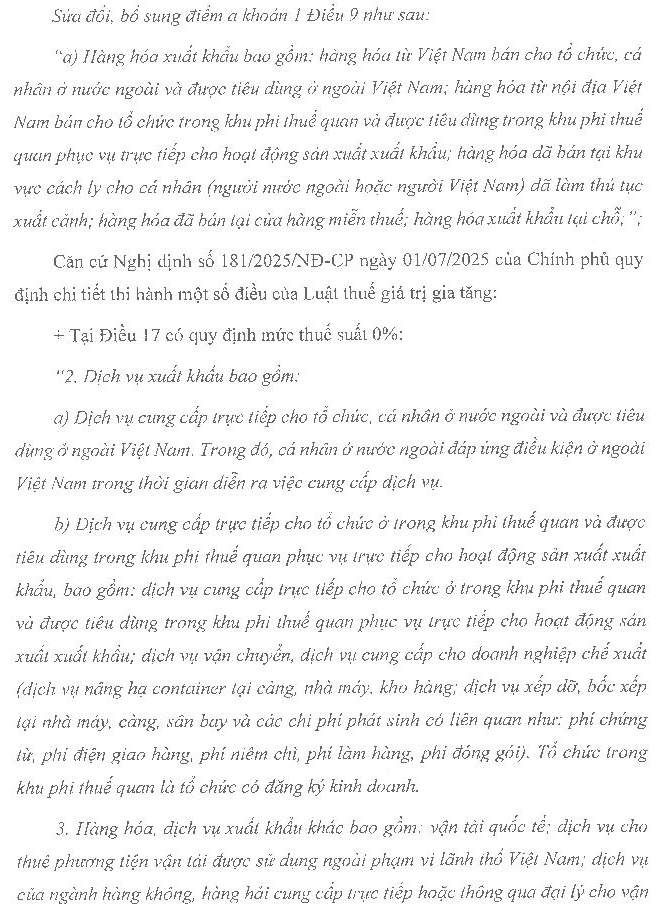 Sửa đổi, bổ sung điểm a khoản 1 Điều 9 như sau:
"a) Hàng hóa xuất khẩu bao gồm: hàng hóa từ Việt Nam bán cho tổ chức, cá
nhân ở nước ngoài và được tiêu dùng ở ngoài Việt Nam; hàng hóa từ nội địa Việt
Nam bán cho tổ chức trong khu phi thuế quan và được tiêu dùng trong khu phi thuế
quan phục vụ trực tiếp cho hoạt động sản xuất xuất khẩu; hàng hóa đã bán tại khu
vực cách ly cho cá nhân (người nước ngoài hoặc người Việt Nam) đã làm thủ tục
xuất cảnh; hàng hóa đã bán tại cửa hàng miễn thuế; hàng hóa xuất khẩu tại chỗ;";
Căn cứ Nghị định số 181/2025/NĐ-CP ngày 01/07/2025 của Chính phủ quy
định chi tiết thi hành một số điều của Luật thuế giá trị gia tăng:
+ Tại Điều 17 có quy định mức thuế suất 0%:
"2. Dịch vụ xuất khẩu bao gồm:
a) Dịch vụ cung cấp trực tiếp cho tổ chức, cá nhân ở nước ngoài và được tiêu
dùng ở ngoài Việt Nam. Trong đó, cá nhân ở nước ngoài đáp ứng điều kiện ở ngoài
Việt Nam trong thời gian diễn ra việc cung cấp dịch vụ.
b) Dịch vụ cung cấp trực tiếp cho tổ chức ở trong khu phi thuế quan và được
tiêu dùng trong khu phi thuế quan phục vụ trực tiếp cho hoạt động sản xuất xuất
khẩu, bao gồm: dịch vụ cung cấp trực tiếp cho tổ chức ở trong khu phi thuế quan
và được tiêu dùng trong khu phi thuế quan phục vụ trực tiếp cho hoạt động sản
xuất xuất khẩu; dịch vụ vận chuyển, dịch vụ cung cấp cho doanh nghiệp chế xuất
(dịch vụ nâng hạ container tại cảng, nhà máy, kho hàng; dịch vụ xếp dỡ, bốc xếp
tại nhà máy, cảng, sân bay và các chi phí phát sinh có liên quan như: phí chứng
từ, phí điện giao hàng, phí niêm chì, phí làm hàng, phí đóng gói). Tổ chức trong
khu phi thuế quan là tổ chức có đăng ký kinh doanh.
3. Hàng hóa, dịch vụ xuất khẩu khác bao gồm: vận tải quốc tế; dịch vụ cho
thuê phương tiện vận tải được sử dụng ngoài phạm vi lãnh thổ Việt Nam; dịch vụ
của ngành hàng không, hàng hải cung cấp trực tiếp hoặc thông qua đại lý cho vận